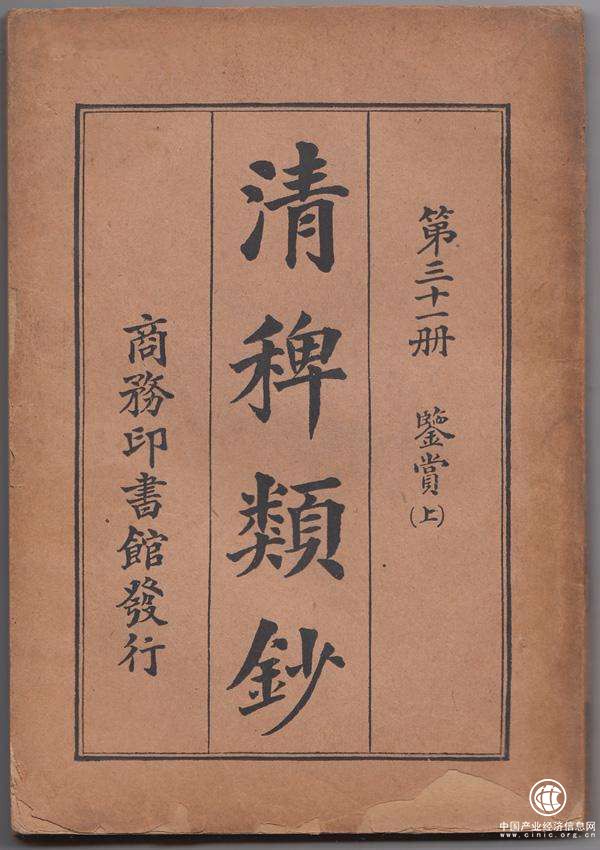 第三十一册 鑒賞(上)
清稗類鈔
商務印書館發行
中国产业经济信息网
www.cinic.org.cn